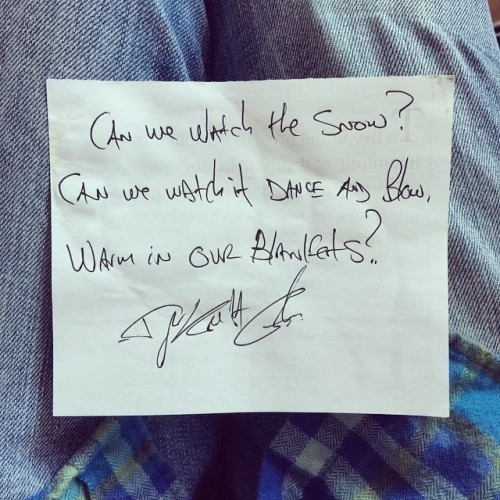 CAN we WAtch the SNOW?
CAN we wAtch it DANCE AND Blow,
WArm iN OUR BlANkets?